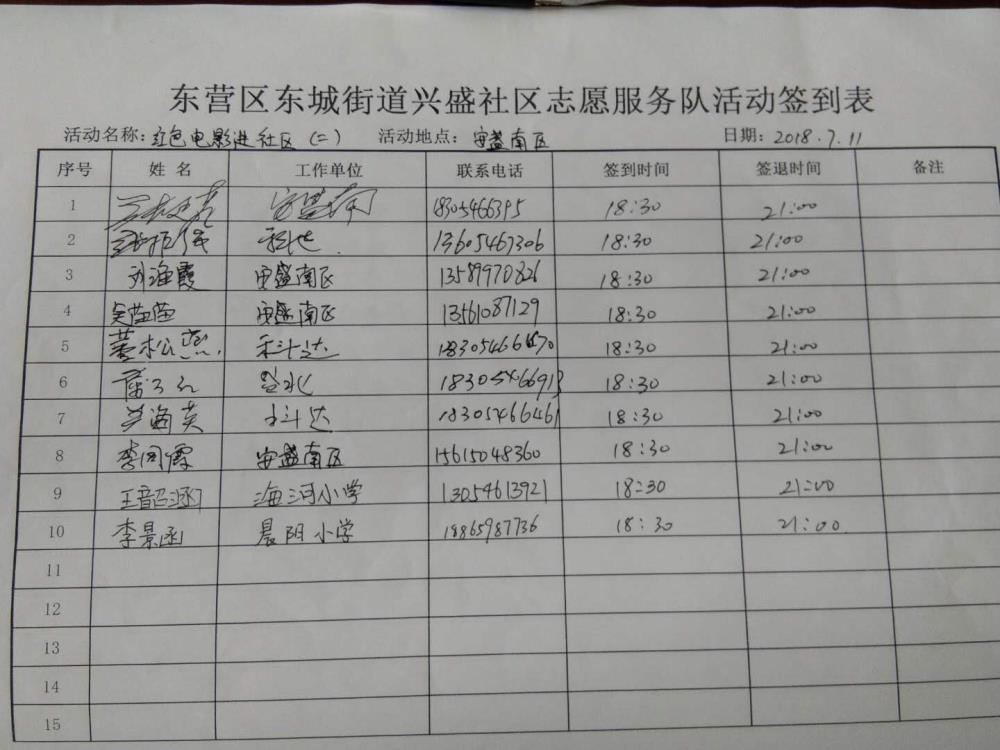 东营区东城街道兴盛社区志愿服务队活动签到表
活动名称：红色电影进社区（二） 活动地点：安盛南区 日期：2018.7.11
序号 姓名 工作单位 联系电话 签到时间 签退时间 备注
1 安盛南 18:30 21:00
2 13605467306 18:30 21:00
3 刘海霞 安盛南区 13589970826 18:30 21:00
4 安盛南区 13561087129 18:30 21:00
5 科达 18:30 21:00
6 18305466913 18:30 21:00
7 科达 18305466461 18:30 21:00
8 安盛南区 15615048360 18:30 21:00
9 王韶涵 海河小学 13054613921 18:30 21:00
10 李景函 晨阳小学 18865987736 18:30 21:00
11
12
13
14
15